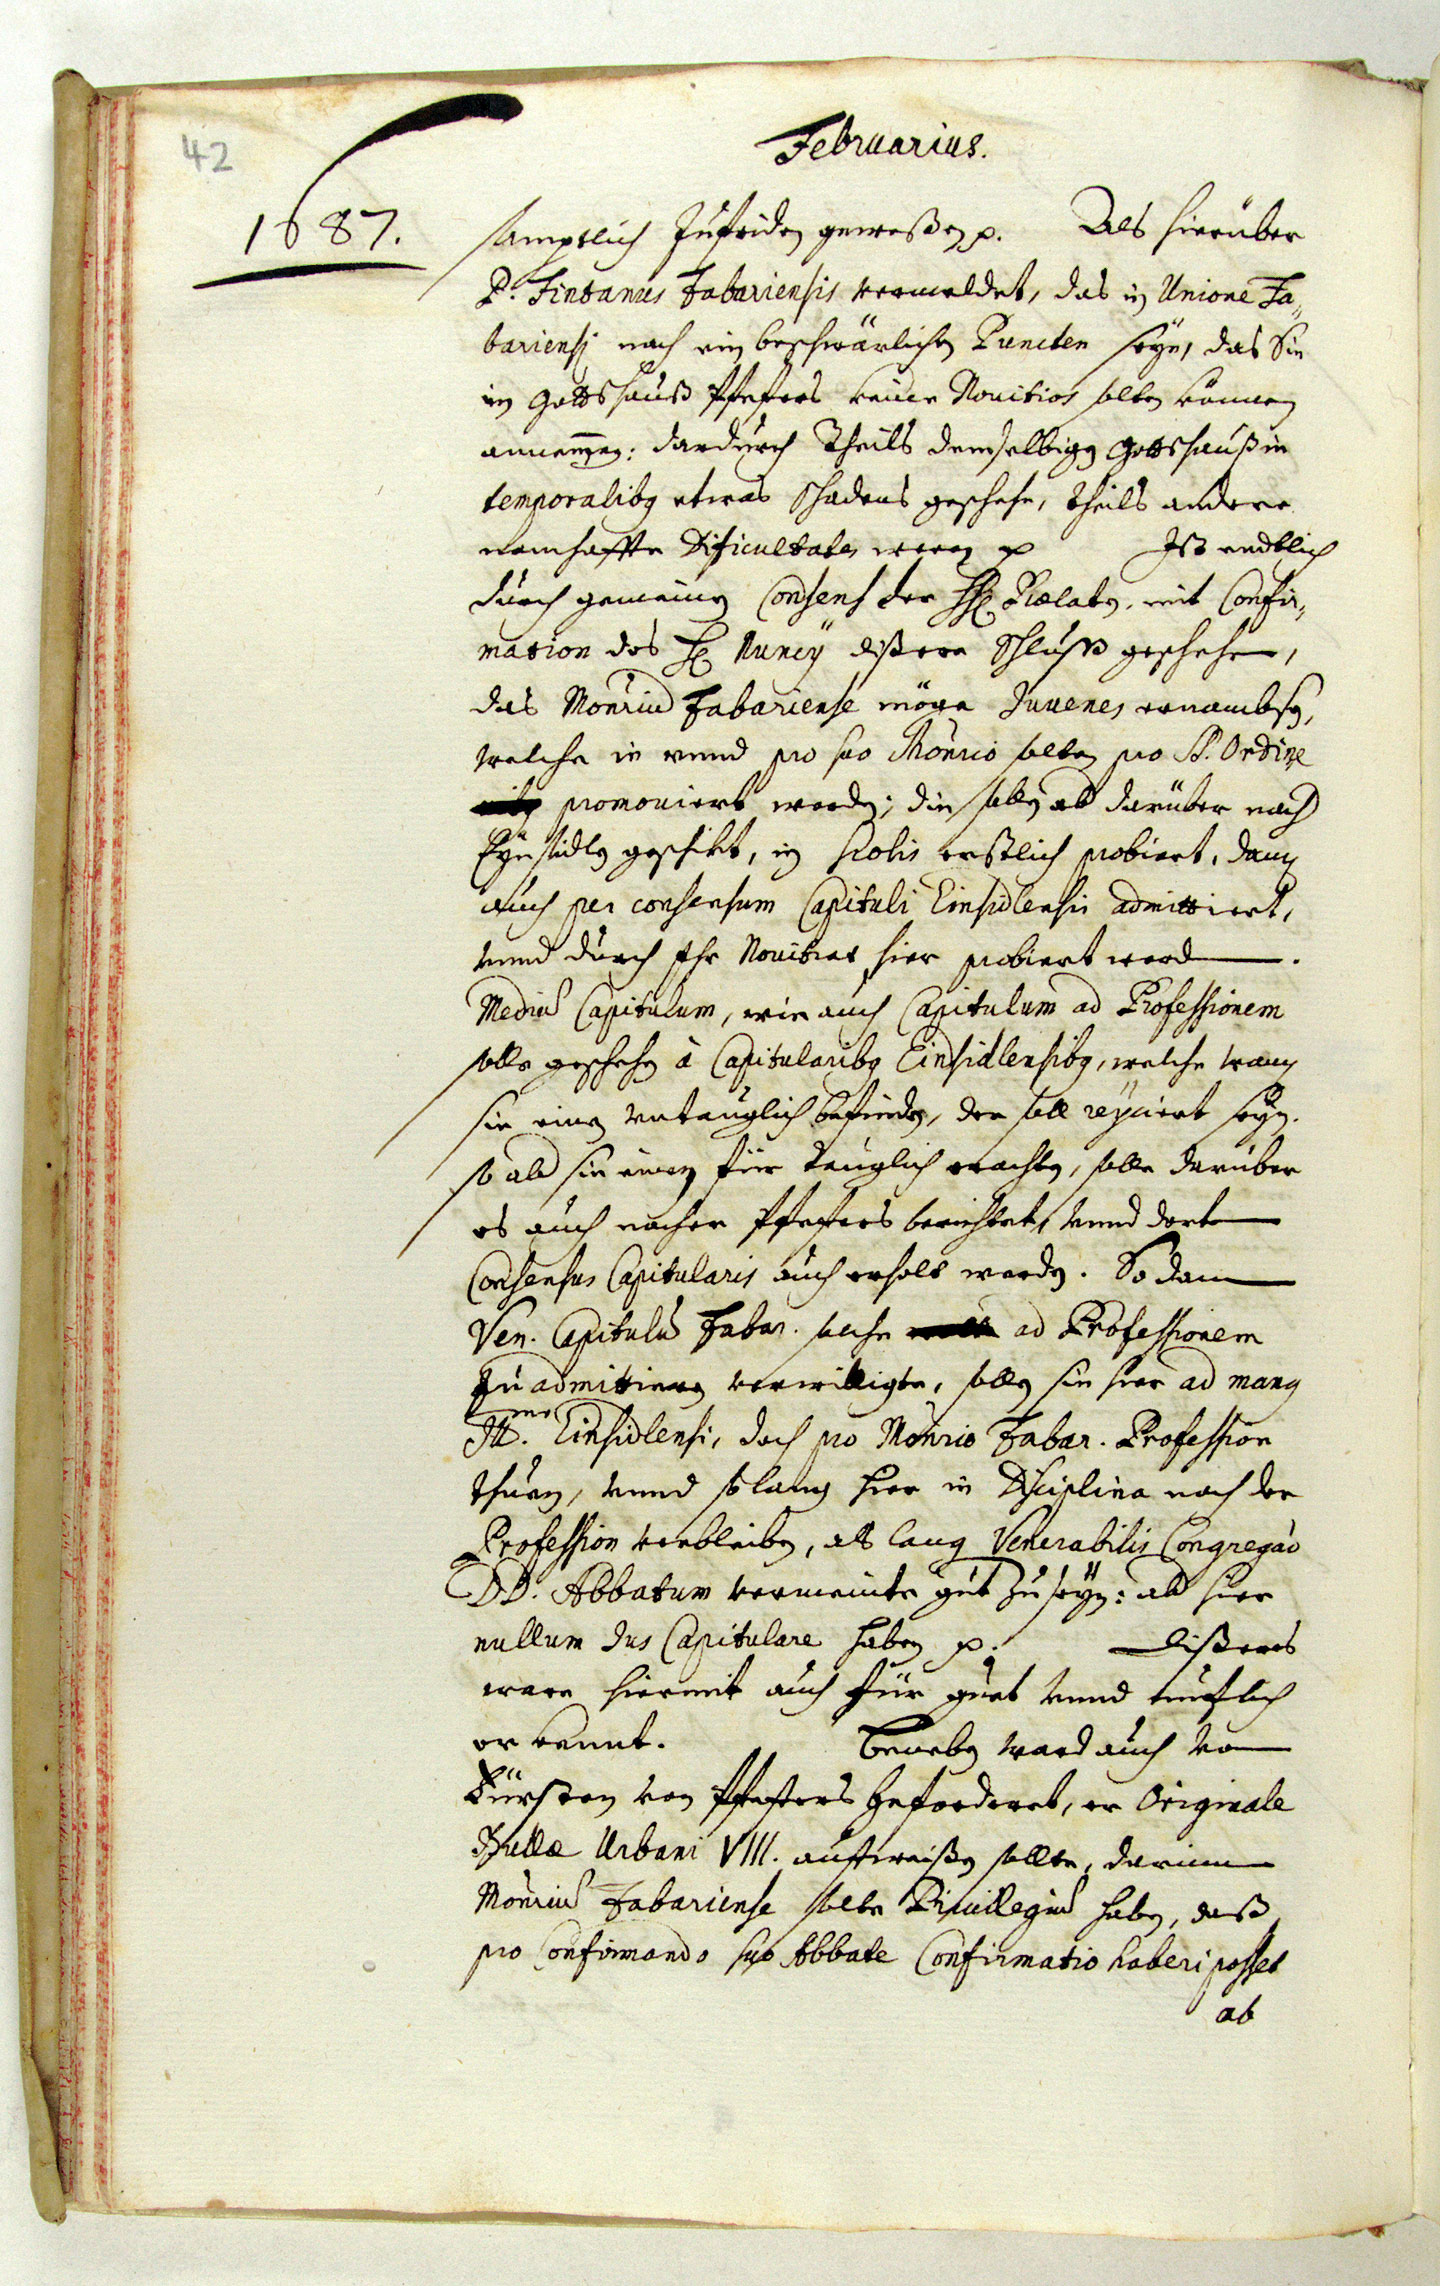 42
Februarius.
1687.
samptlich zufriden gewessen p. Als hierüber
P. Fintanus Fabariensis vermeldet, das in Unione Fa-
bariensi noch ein beschwärlichen Puncten seye, das Sie
im Gottshauß Pfefers keine Novitios solten können
annemmen: dardurch Theils demselbigen Gottshauß in
temporalibus etwas Schadens geschehe, theils andere
namhaffte Dificultates weren p Ist endtlich
durch gemeinen Consens der HH. Prælaten, mit Confir-
mation des H. Nuncÿ dißere Schluß geschehen,
das Monrium Fabariense möge Juvenes ernambsen,
welche in unnd pro suo Monrio solten pro St. Ordine
promoviert werden; die sollen ab darüber nach
Eÿnsidlen geschikt, in scolis erstlich probiert, dann
auch per consensum Capituli Einsidlensis admittiert,
unnd durch Ihr Novitiat hier probiert werden.
Medium Capitulum, wie auch Capitulum ad Professionem
solle geschehen à Capitularibus Einsidlensibus, welche wann
sie einen untauglich befinden, der soll rejiciert seyn.
so ab sie einen für tauglich erachten, solle darüber
es auch nacher Pfefers berichtet, unnd dorten
Consensus Capitularis auch erholt werden. So dann
Ven. Capitulum Fabar. solche ad Professionem
zu admittieren verwilligte, sollen sie hier ad manus
Illmi Einsidlensis, doch pro Monrio Fabar. Profession
thuen, unnd so lang hier in Disciplina nach der
Profession verbleiben, als lang Venerabilis Congregatio
DD. Abbatum vermeinte gut zu seyn: ab hier
nullum Jus Capitulare haben p. Dißeres
ware hiermit auch für guet unnd nutzlich
erkennt. Beneben ward auch vom
Fürsten von Pfefers geforderet, er Originale
Bullæ Urbani VIII. auffweisen sollte, darinnen
Monrium Fabariense solte Privilegium haben, daß
pro Confirmando suo Abbate Confirmatio haberi posset
ab